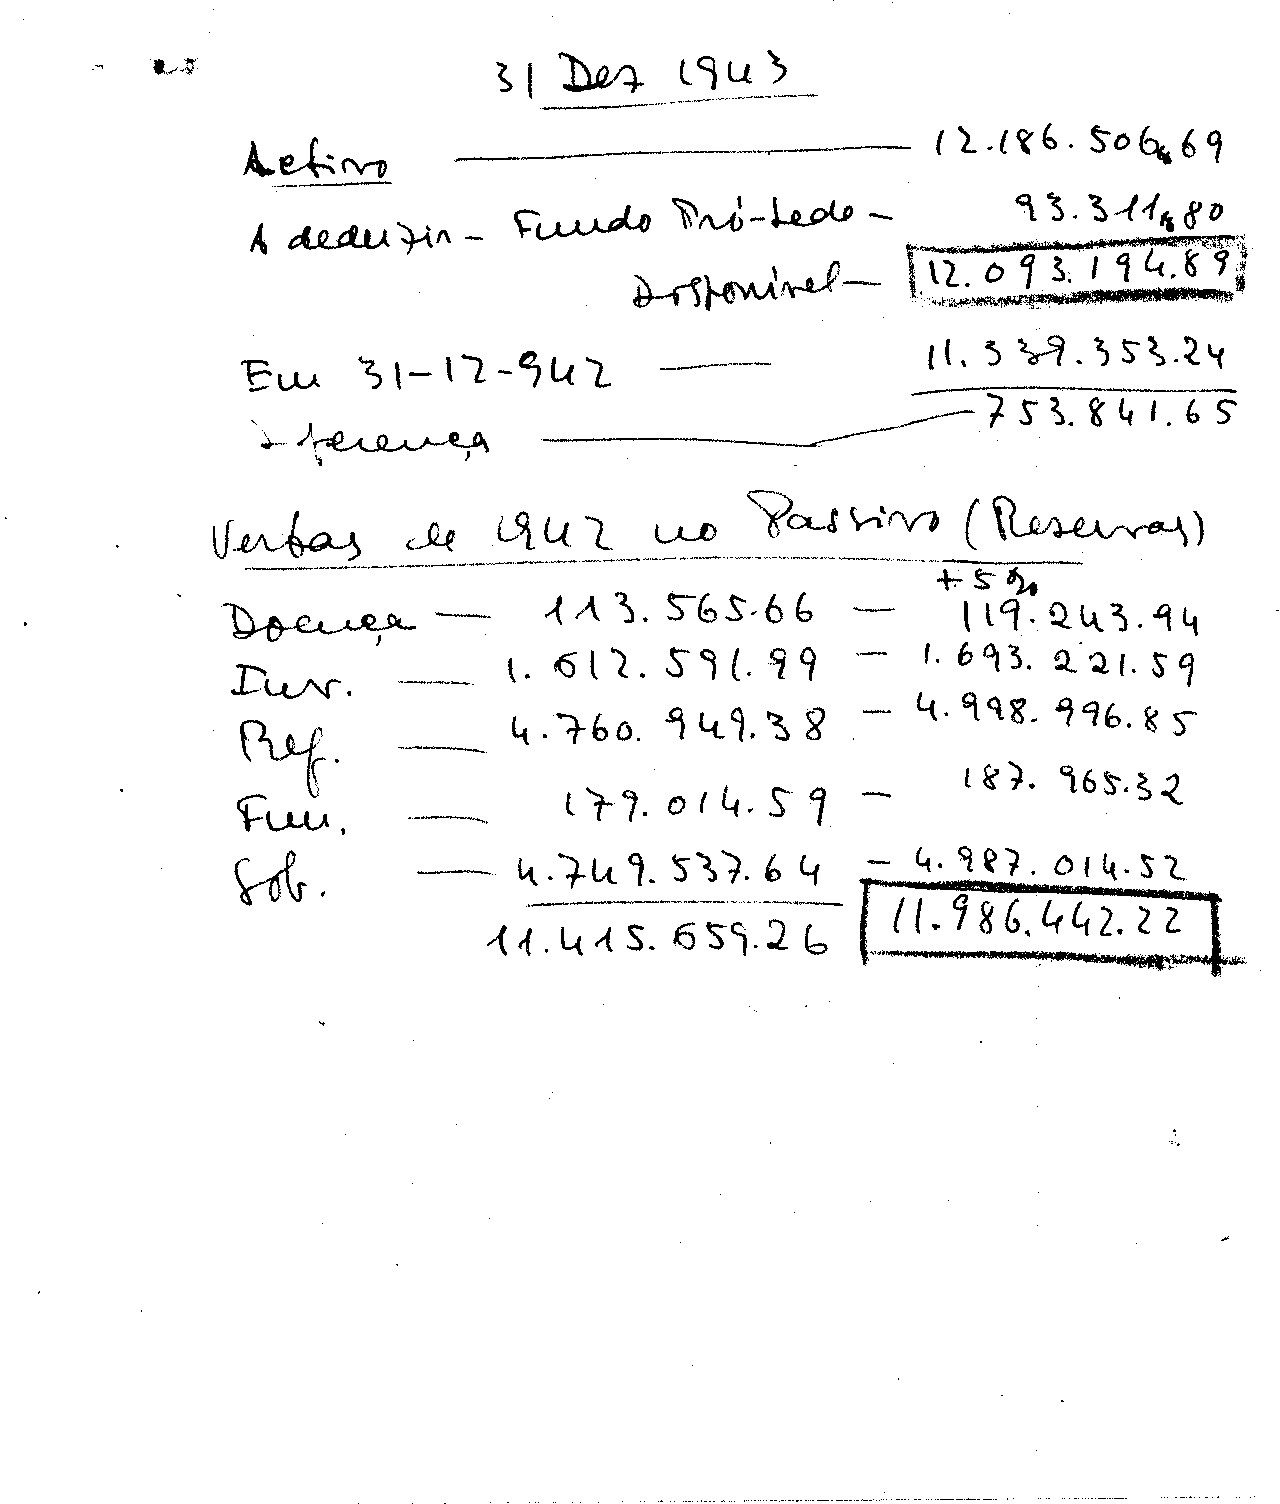 31 Dez 1943
Activo — 12.186.506,69
A deduzir - Fundo Pró-Sede - 93.311,80
Disponível — 12.093.194.89
Em 31-12-942 — 11.339.353.24
Diferença — 753.841.65
Verbas de 1942 no Passivo (Reservas)
+5%
Doença — 113.565.66 — 119.243.94
Inv. — 1.612.591.99 — 1.693.221.59
Ref. — 4.760.949.38 — 4.998.996.85
Fun. — 179.014.59 — 187.965.32
Sob. — 4.749.537.64 — 4.987.014.52
11.415.659.26 11.986.442.22